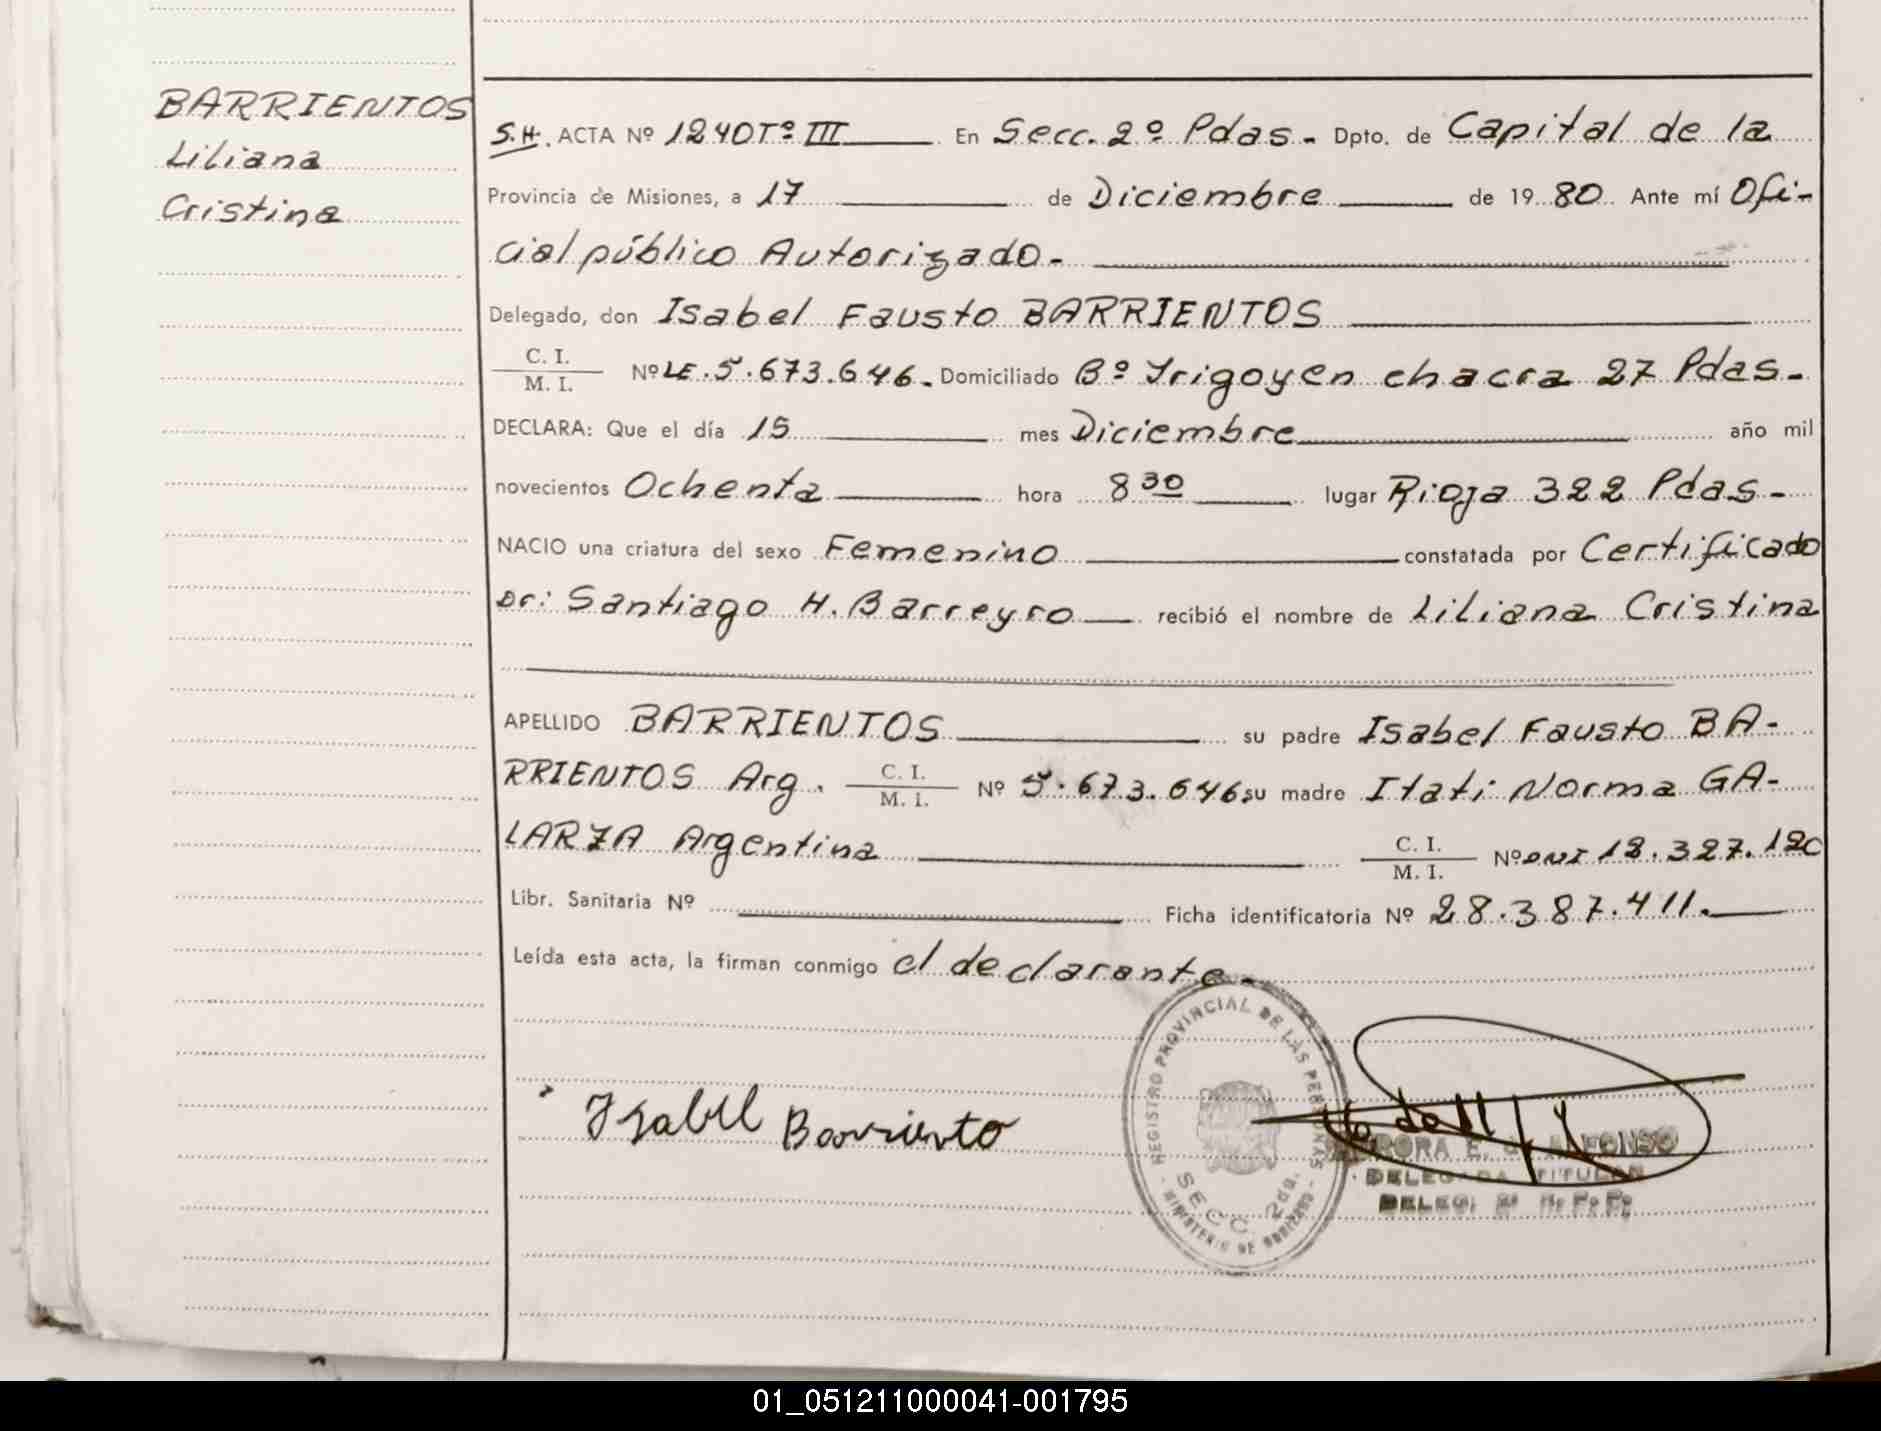 BARRIENTOS
Liliana
Cristina
S.H. ACTA Nº 1240 Tº III En Secc. 2º Pdas. Dpto. de Capital de la
Provincia de Misiones, a 17 de Diciembre de 1980. Ante mí Ofi-
cial público Autorizado.
Delegado, don Isabel Fausto BARRIENTOS
C. I.
M. I.
Nº LE. 5.673.646. Domiciliado Bº Yrigoyen chacra 27 Pdas.
DECLARA: Que el día 15 mes Diciembre año mil
novecientos Ochenta hora 8 30 lugar Rioja 322 Pdas.
NACIO una criatura del sexo Femenino constatada por Certificado
Dr: Santiago H. Barreyro recibió el nombre de Liliana Cristina
APELLIDO BARRIENTOS su padre Isabel Fausto BA-
RRIENTOS Arg. C. I. M. I. Nº 5.673.646. su madre Itati Norma GA-
LARZA Argentina C. I. M. I. Nº DNI
Libr. Sanitaria Nº Ficha identificatoria Nº 28.387.411.
Leída esta acta, la firman conmigo el declarante.
REGISTRO PROVINCIAL DE LAS PERSONAS
SECC. 2da.
MINISTERIO DE GOBIERNO
Isabel Barriento
ALFONSO
DELEGADA TITULAR
DELEG. 2ª R. P. P.
01_051211000041-001795